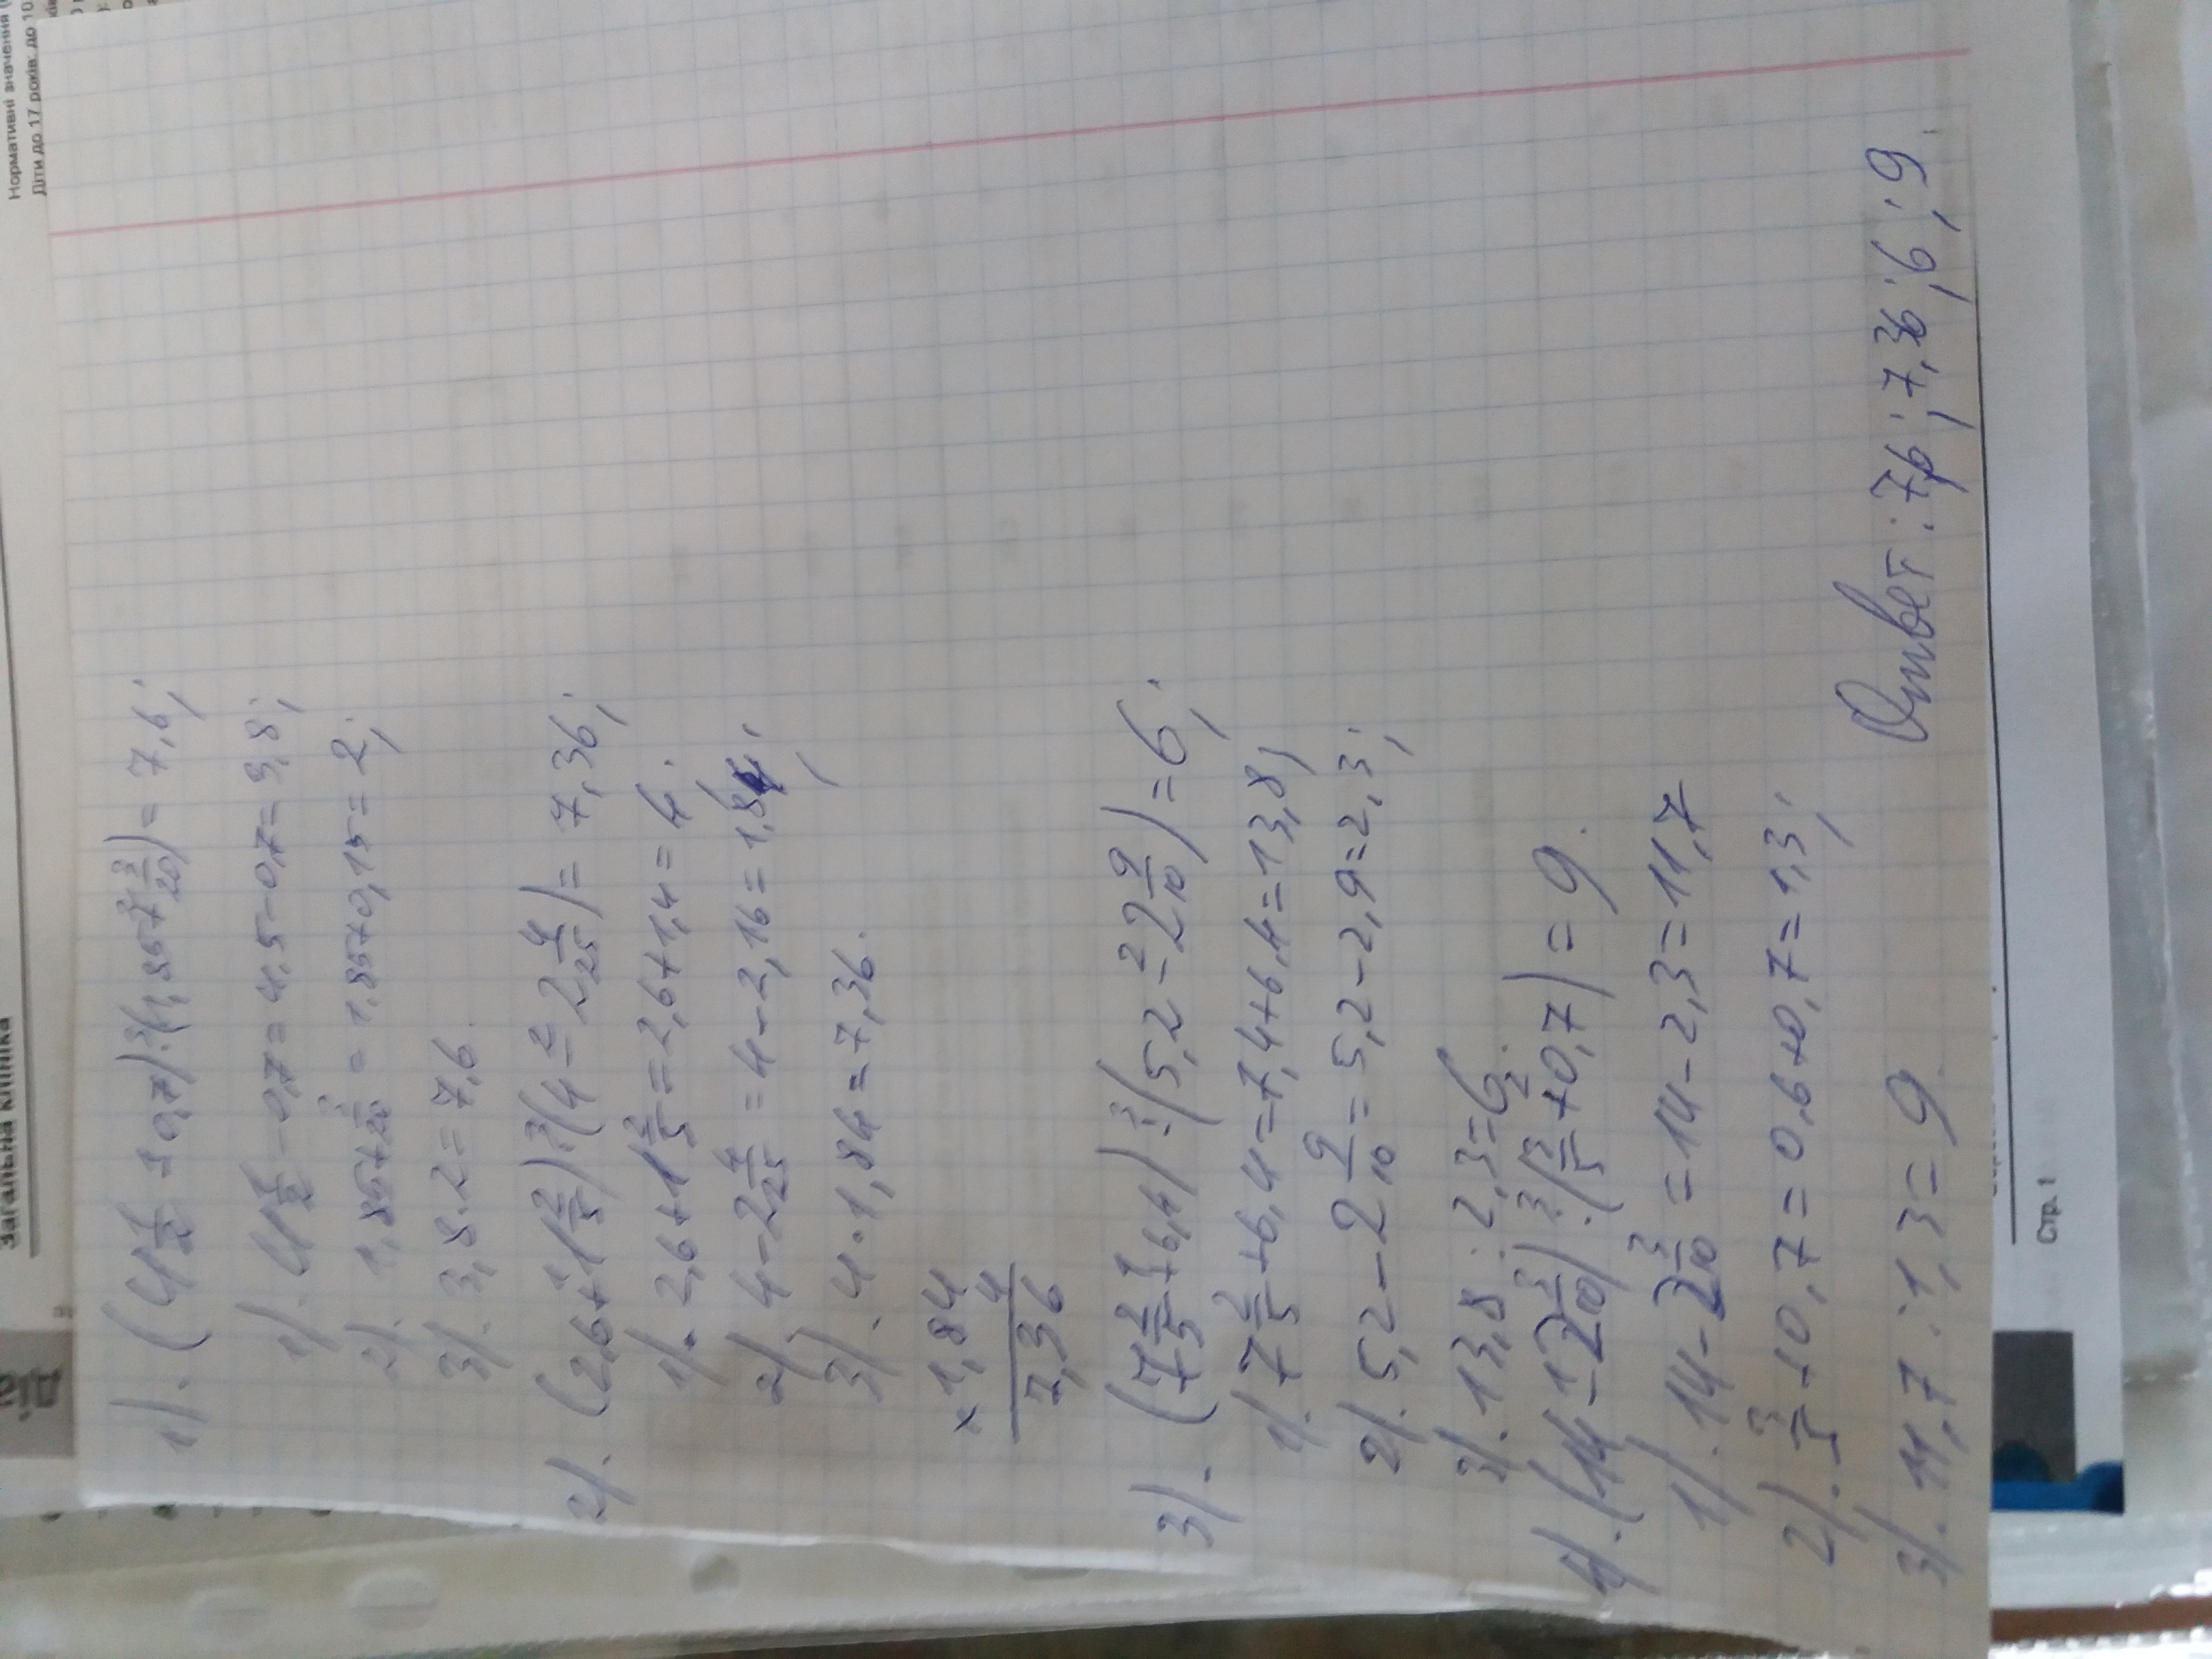 Нормативні значення
Діти до 17 років: до 10
Загальна клініка
1). (4 1/2 - 0,7) · (1,85 + 3/20) = 7,6;
1). 4 1/2 - 0,7 = 4,5 - 0,7 = 3,8;
2). 1,85 + 3/20 = 1,85 + 0,15 = 2;
3). 3,8 · 2 = 7,6.
2). (2,6 + 1 2/5) · (4 - 2 4/25) = 7,36;
1). 2,6 + 1 2/5 = 2,6 + 1,4 = 4.
2). 4 - 2 4/25 = 4 - 2,16 = 1,84;
3). 4 · 1,84 = 7,36.
× 1,84
4
7,36
3). (7 2/5 + 6,4) : (5,2 - 2 9/10) = 6;
1). 7 2/5 + 6,4 = 7,4 + 6,4 = 13,8;
2). 5,2 - 2 9/10 = 5,2 - 2,9 = 2,3;
3). 13,8 : 2,3 = 6.
4). (14 - 2 3/10) : (3/5 + 0,7) = 9.
1). 14 - 2 3/10 = 14 - 2,3 = 11,7
2). 3/5 + 0,7 = 0,6 + 0,7 = 1,3;
3). 11,7 : 1,3 = 9.
Ответ: 7,6; 7,36; 6; 9.
Стр. 1